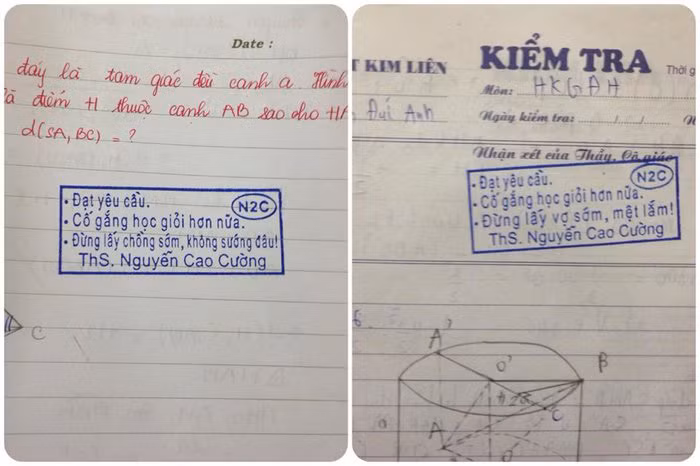 Date :
đáy là tam giác đều cạnh a. Hình
là điểm H thuộc cạnh AB sao cho HA
d(SA, BC) = ?
• Đạt yêu cầu. N2C
• Cố gắng học giỏi hơn nữa.
• Đừng lấy chồng sớm, không sướng đâu!
ThS. Nguyễn Cao Cường
C
T KIM LIÊN
KIỂM TRA
Thời g
Môn: HKGĐH
Đuí Anh
Ngày kiểm tra: / /
N
Nhận xét của Thầy, Cô giáo
• Đạt yêu cầu. N2C
• Cố gắng học giỏi hơn nữa.
• Đừng lấy vợ sớm, mệt lắm!
ThS. Nguyễn Cao Cường
A'
O'
B
C
A